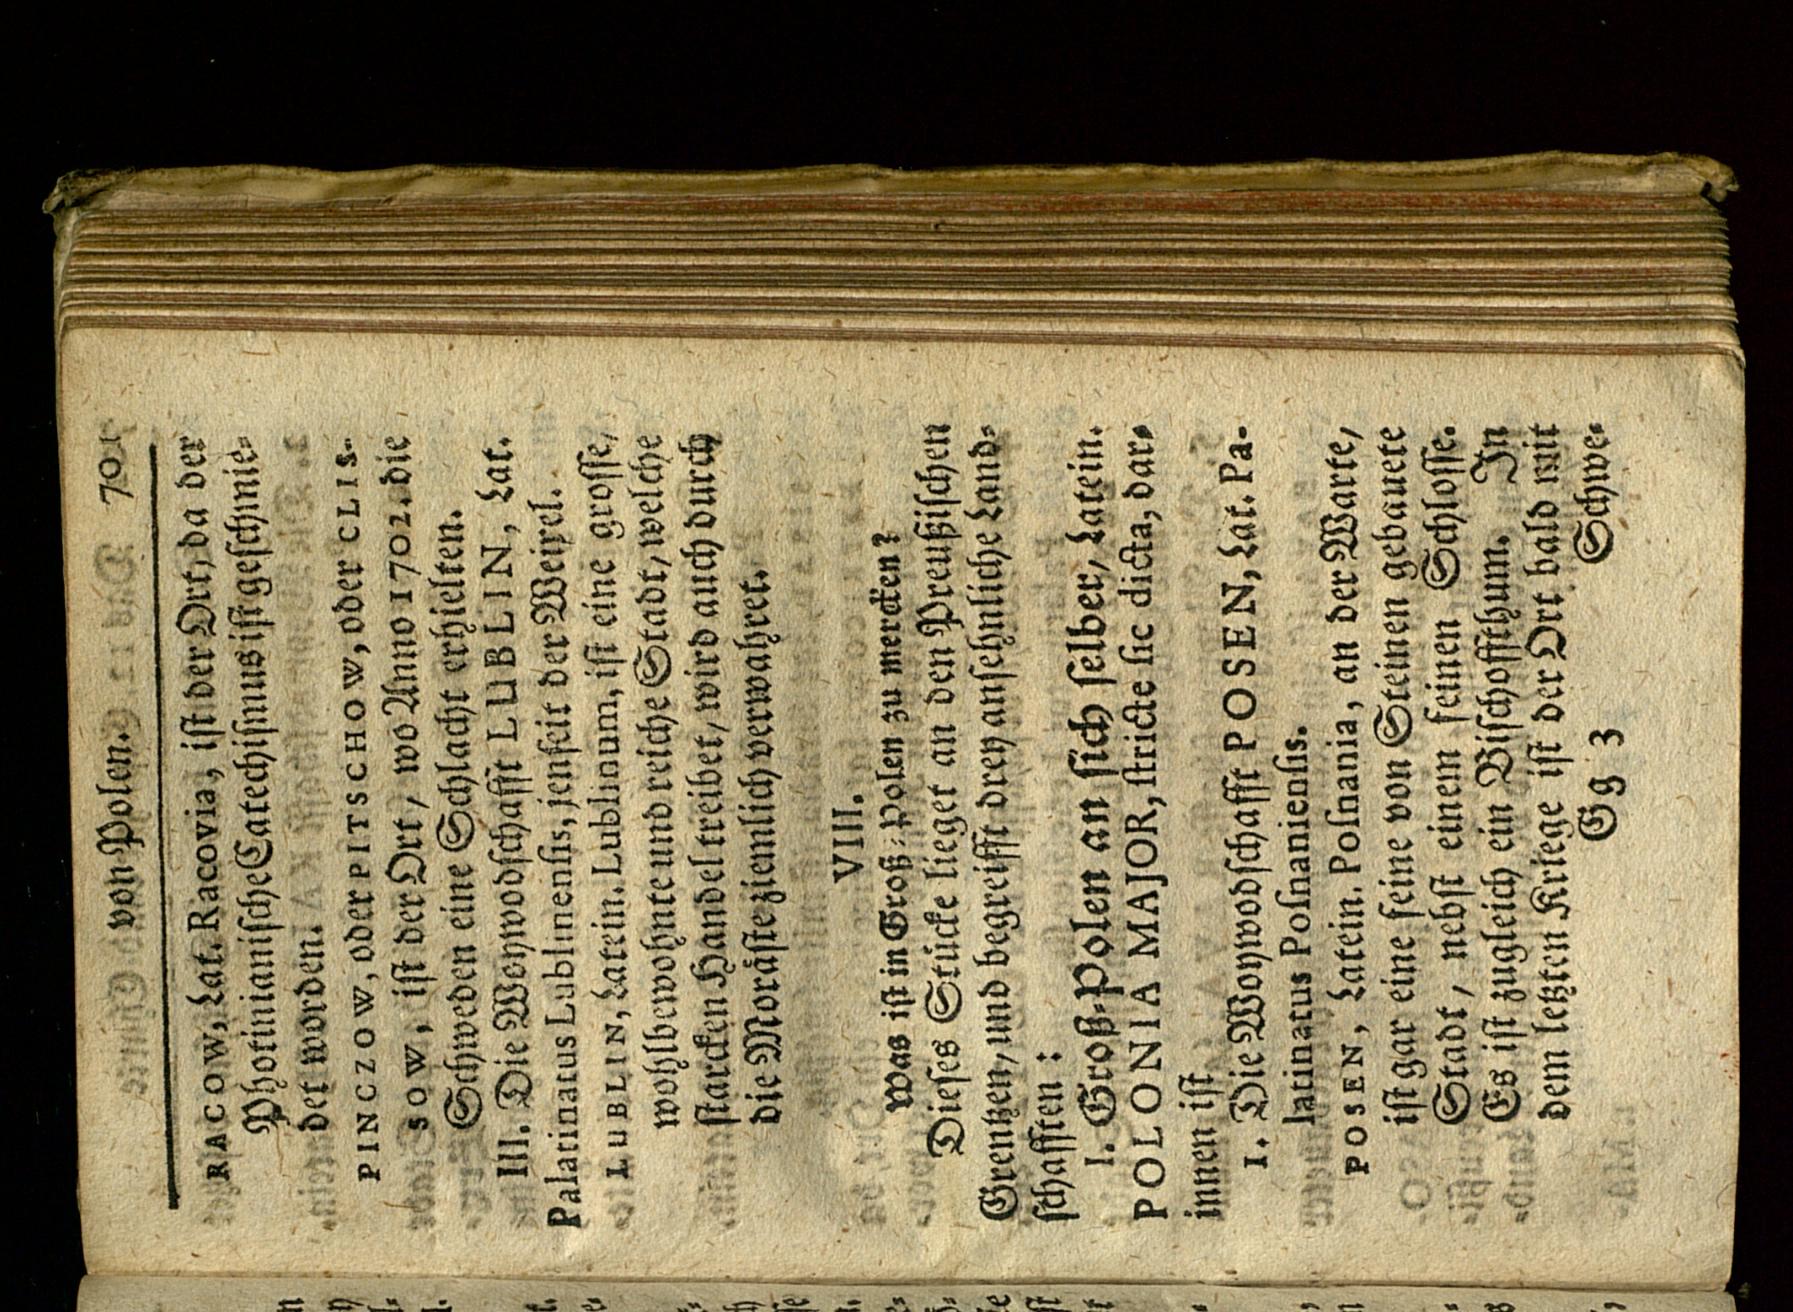 von Polen. 701
RACOW, Lat. Racovia, iſt der Ort, da der
Photinianiſche Catechiſmus iſt geſchmie-
det worden.
PINCZOW, oder PITSCHOW, oder CLIS-
SOW, iſt der Ort, wo Anno 1702. die
Schweden eine Schlacht erhielten.
III. Die Woywodſchafft LUBLIN, Lat.
Palatinatus Lublinenſis, jenſeit der Weixel.
LUBLIN, Latein. Lublinum, iſt eine groſſe,
wohlbewohnte und reiche Stadt, welche
ſtarcken Handel treibet, wird auch durch
die Moräſte ziemlich verwahret.
VIII.
Was iſt in Groß-Polen zu mercken?
Dieſes Stücke lieget an den Preußiſchen
Grentzen, und begreifft drey anſehnliche Land-
ſchafften:
I. Groß-Polen an ſich ſelber, Latein.
POLONIA MAJOR, ſtricte ſic dicta, dar-
innen iſt
1. Die Woywodſchafft POSEN, Lat. Pa-
latinatus Poſnanienſis.
POSEN, Latein. Poſnania, an der Warte,
iſt gar eine feine von Steinen gebauete
Stadt, nebſt einem feinen Schloſſe.
Es iſt zugleich ein Biſchoffthum. In
dem letzten Kriege iſt der Ort bald mit
Gg 3 Schwe-